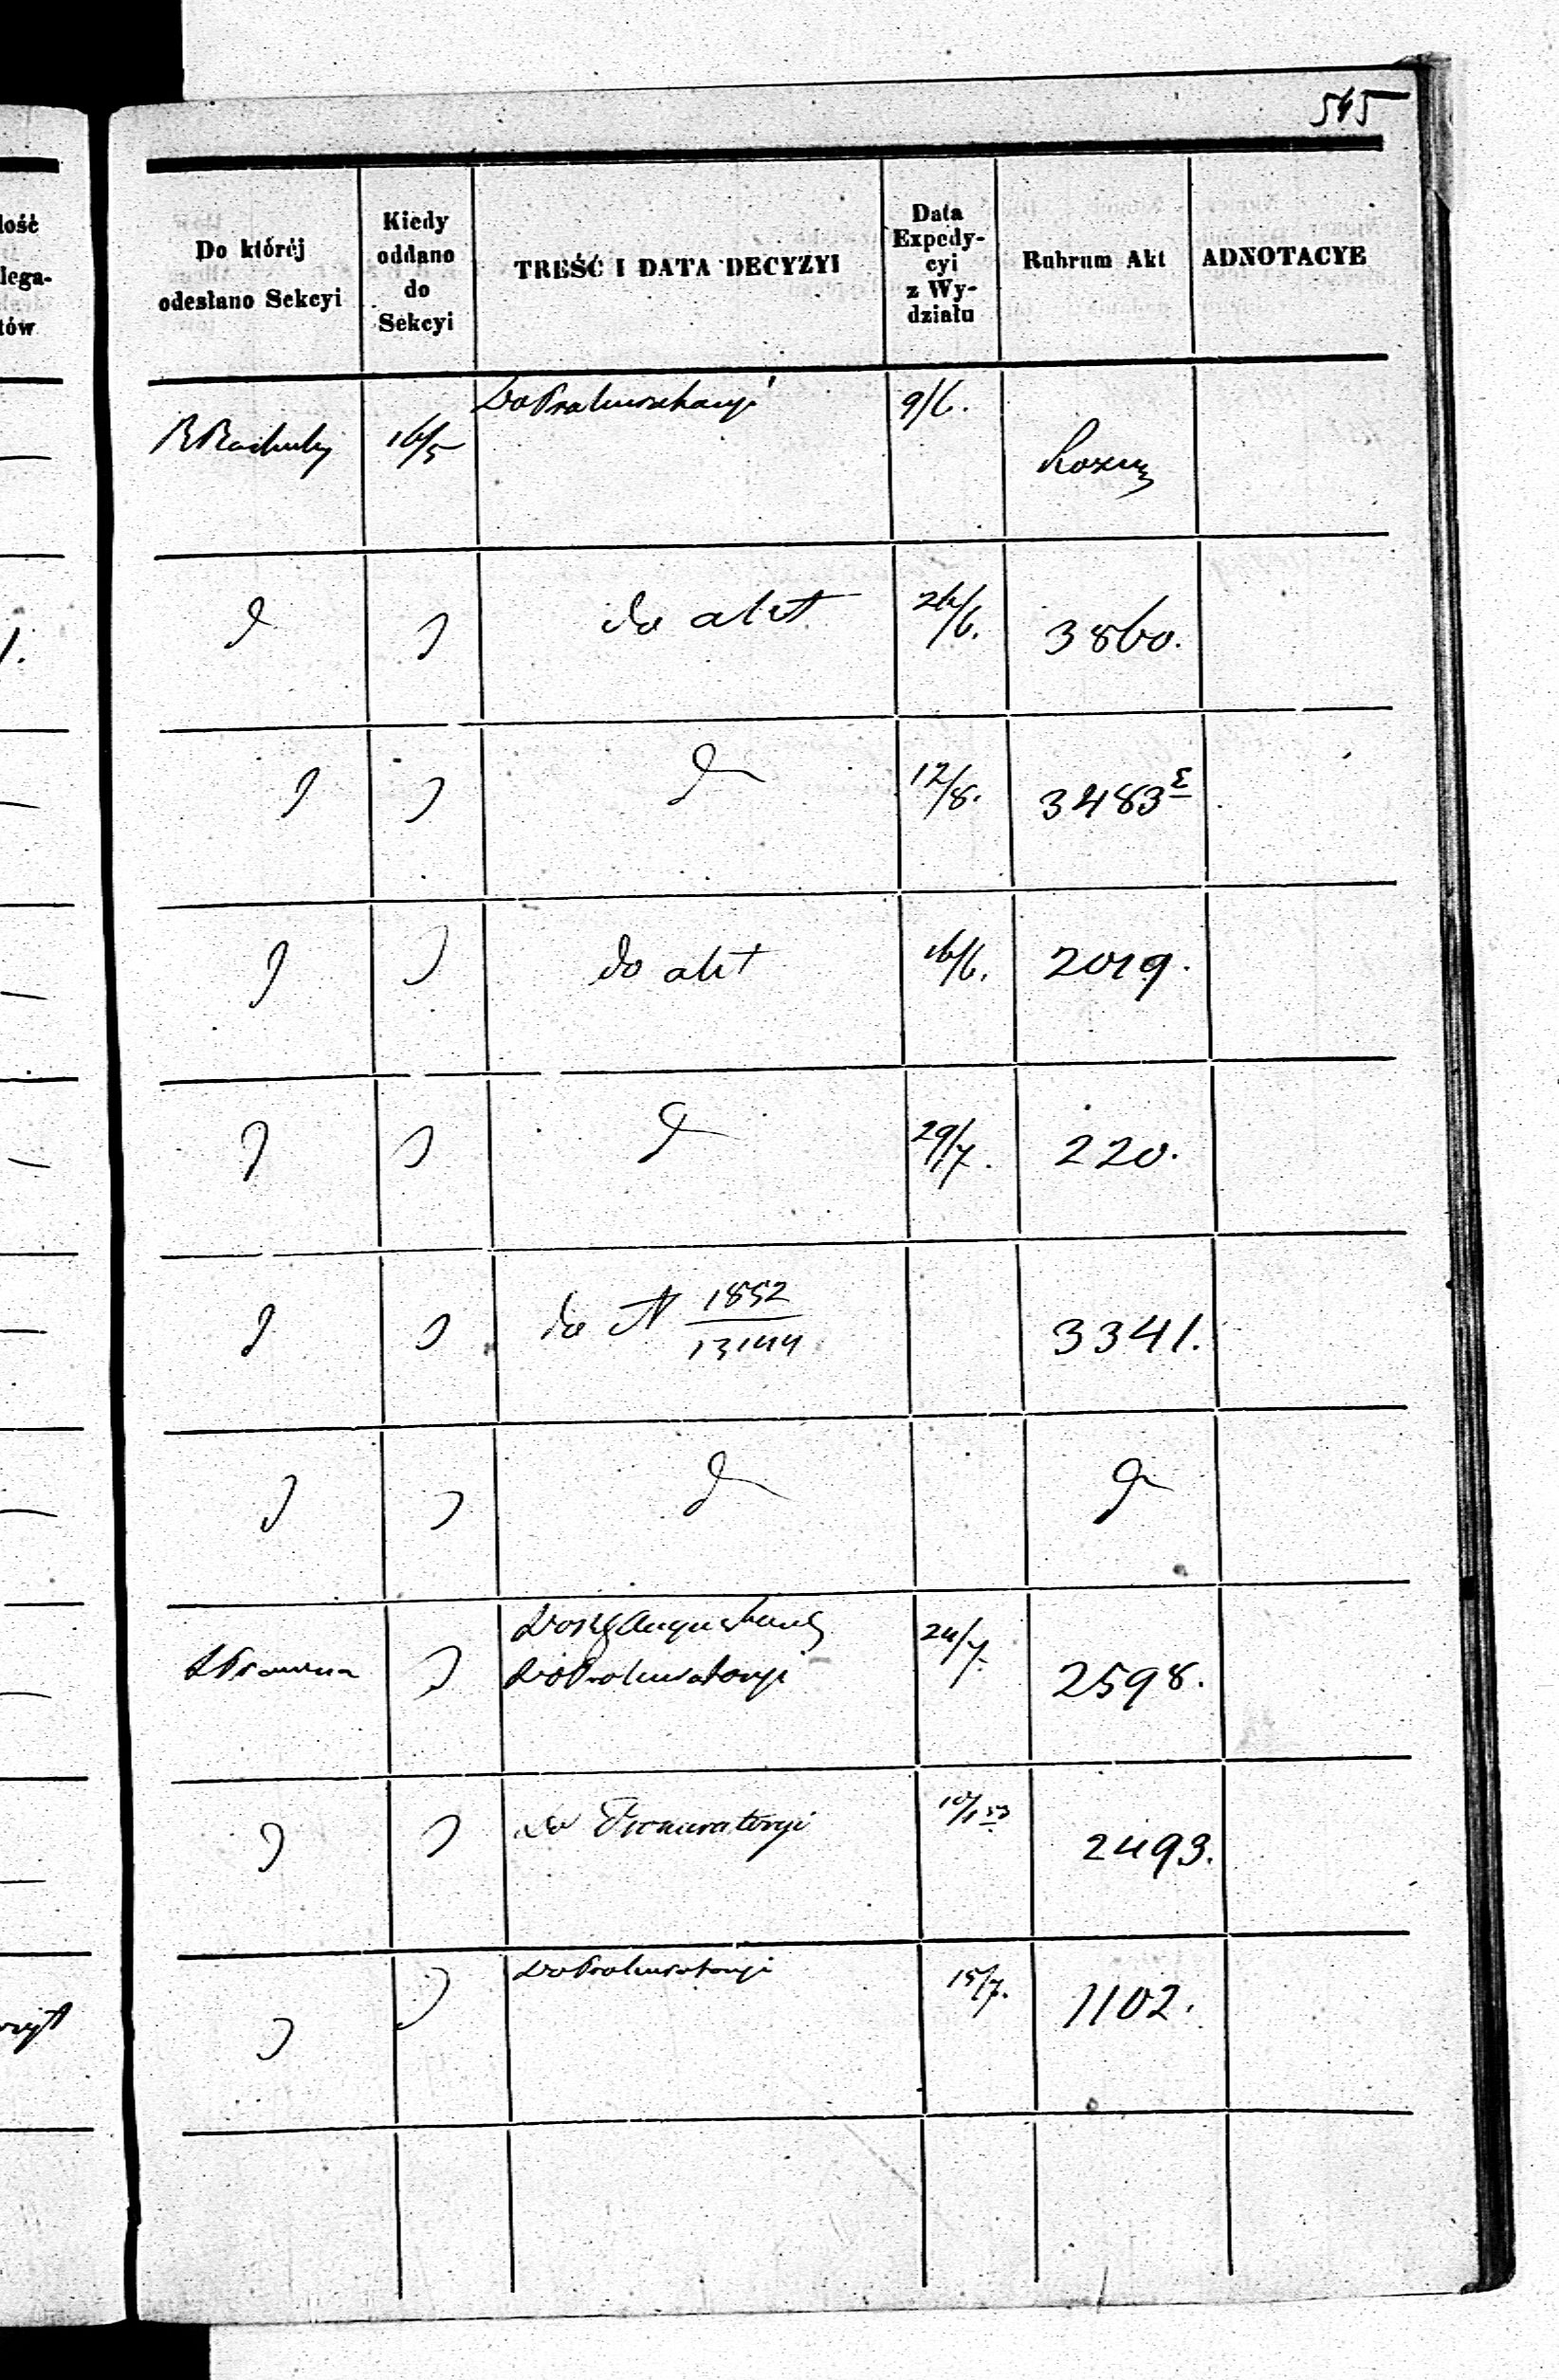 545
lość
lega-
tów
Do któréj
odesłano Sekcyi
Kiedy
oddano
do
Sekcyi
TREŚĆ I DATA DECYZYI
Data
Expedy-
cyi
z Wy-
działu
Rubrum Akt
ADNOTACYE
Do Prokuratoryi 9/6.
16/5
do akt 26/6. 3860.
12/8. 3483
do akt 16/6. 2019.
29/7. 220.
do N 1852
13144
3341.
24/7.
Do Prokuratoryi
2598.
Do Prokuratoryi 10/1 53
2493.
Do Prokuratoryi 15/7. 1102.